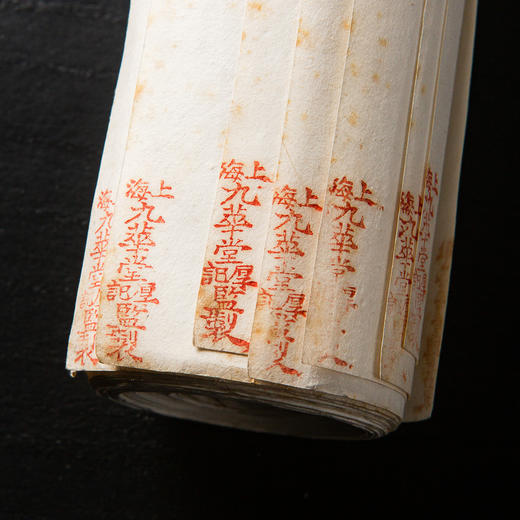 海九華堂記監製
上海九華堂厚記監製
上海九華堂厚記監製
上海九華堂厚
上海九華
海九華堂